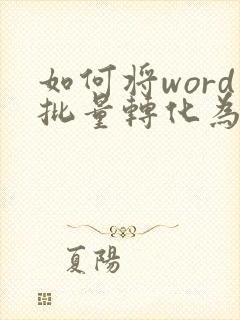 如何将word
批量轉化為
夏陽